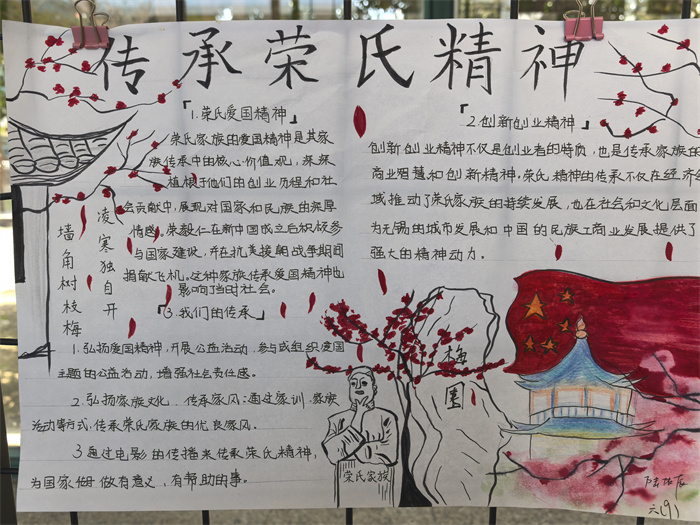 传承荣氏精神
「1.荣氏爱国精神」
荣氏家族的爱国精神是其家
族传承中的核心价值观，深深
植根于他们的创业历程和社
会贡献中，展现对国家和民族的深厚
情感，荣毅仁在新中国成立后积极参
与国家建设，并在抗美援朝战争期间
捐献飞机。这种家族传承爱国精神也
影响了当时社会。
「2.创新创业精神」
创新创业精神不仅是创业者的特质，也是传承家族在
商业智慧和创新精神，荣氏精神的传承不仅在经济领
域推动了荣氏家族的持续发展，也在社会和文化层面
为无锡的城市发展和中国的民族工商业发展提供了
强大的精神动力。
墙角树枝梅
凌寒独自开
「3.我们的传承」
1.弘扬爱国精神，开展公益活动，参与或组织爱国
主题的公益活动，增强社会责任感。
2.弘扬家族文化、传承家风：通过家训、家族
活动等方式，传承荣氏家族的优良家风。
3通过电影的传播来传承荣氏精神，
为国家做有意义，有帮助的事。
梅园
荣氏家族
六(9)